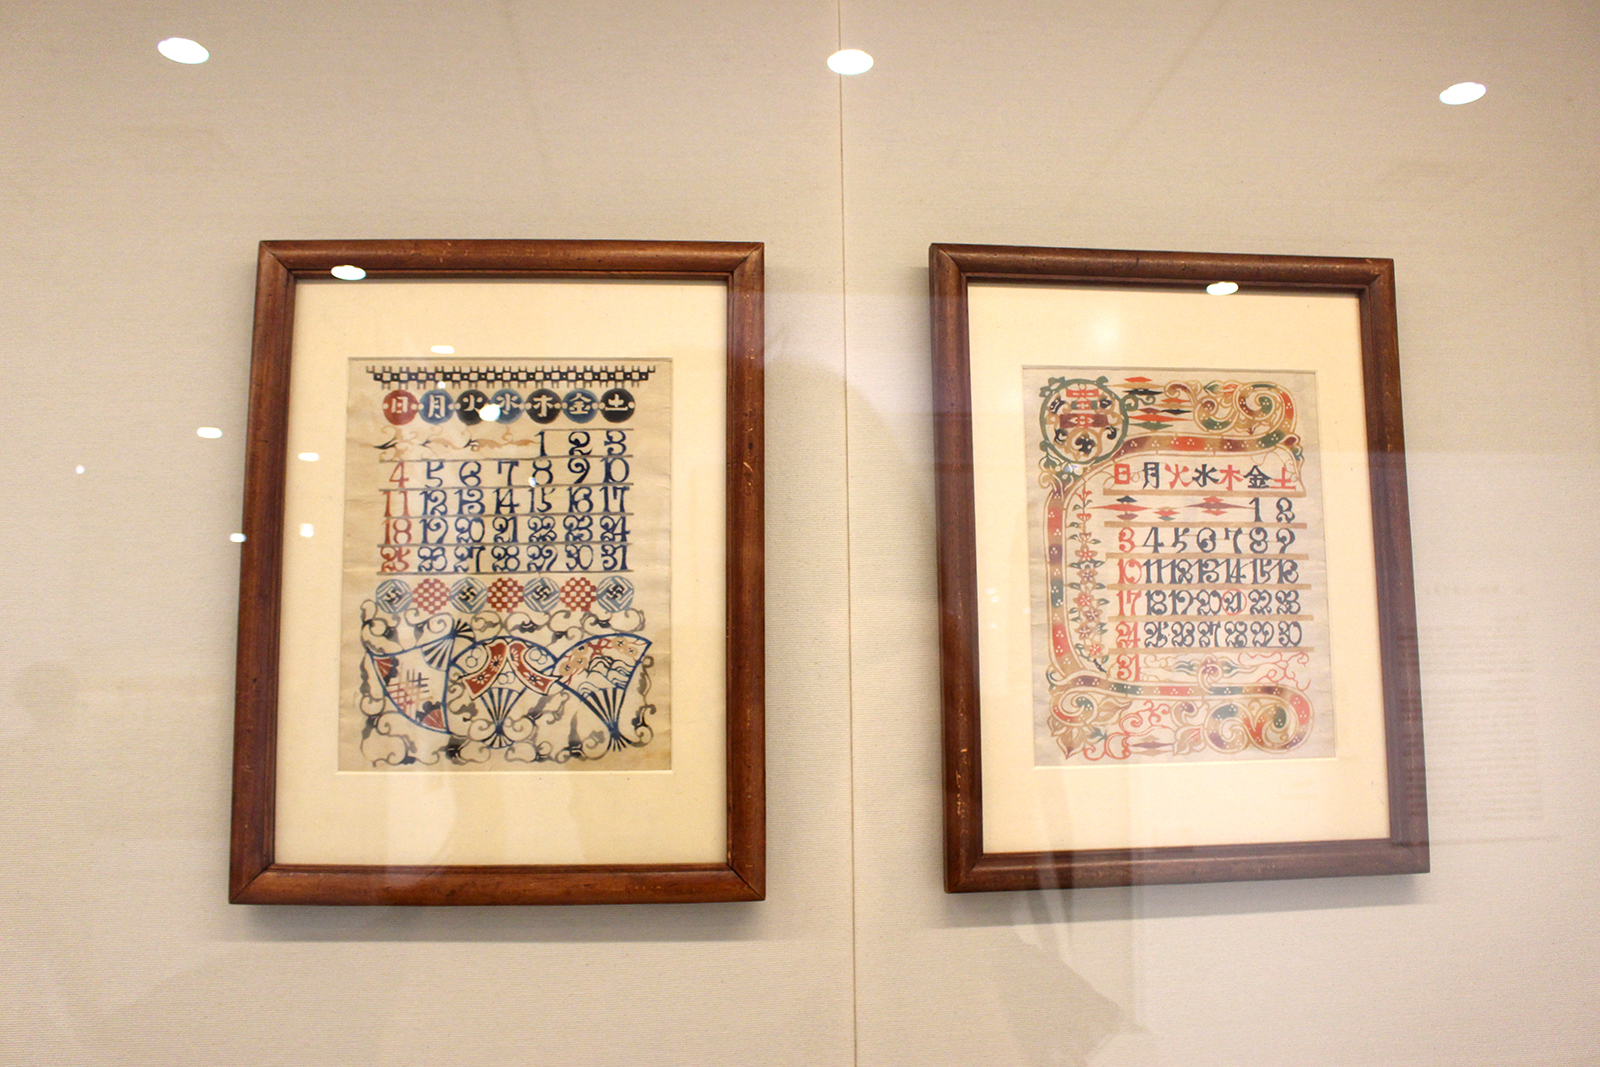 日 月 火 水 木 金 土
1 2 3
4 5 6 7 8 9 10
11 12 13 14 15 16 17
18 19 20 21 22 23 24
25 26 27 28 29 30 31
日 月 火 水 木 金 土
1 2
3 4 5 6 7 8 9
10 11 12 13 14 15 16
17 18 19 20 21 22 23
24 25 26 27 28 29 30
31